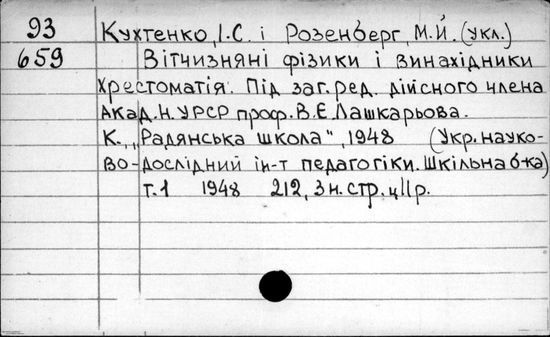 93 Кухтенко, І.С. і Розенберг, М.Й. (укл.)
659 Вітчизняні фізики і винахідники
Хрестоматія. Під заг. ред. дійсного члена
Акад. Н. УРСР проф. В.Є. Лашкарьова.
К., „Радянська школа", 1948 (Укр. науко-
во-дослідний ін-т педагогіки. Шкільна б-ка)
т.1 1948 212, 3 н. стр. ц 11 р.